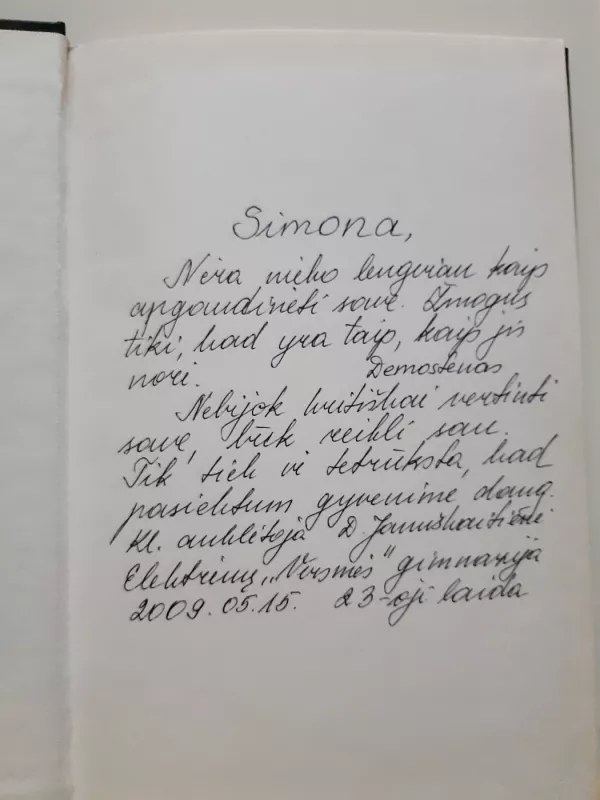 Simona,
Nėra nieko lengviau kaip
apgaudinėti save. Žmogus
tiki, kad yra taip, kaip jis
nori. Demostenas
Nebijok kritiškai vertinti
save, būk reikli sau.
Tik tiek ir tetrūksta, kad
pasiektum gyvenime daug.
Kl. auklėtoja D. Januškaitienė
Elektrėnų „Versmės" gimnazija
2009.05.15. 23-oji laida